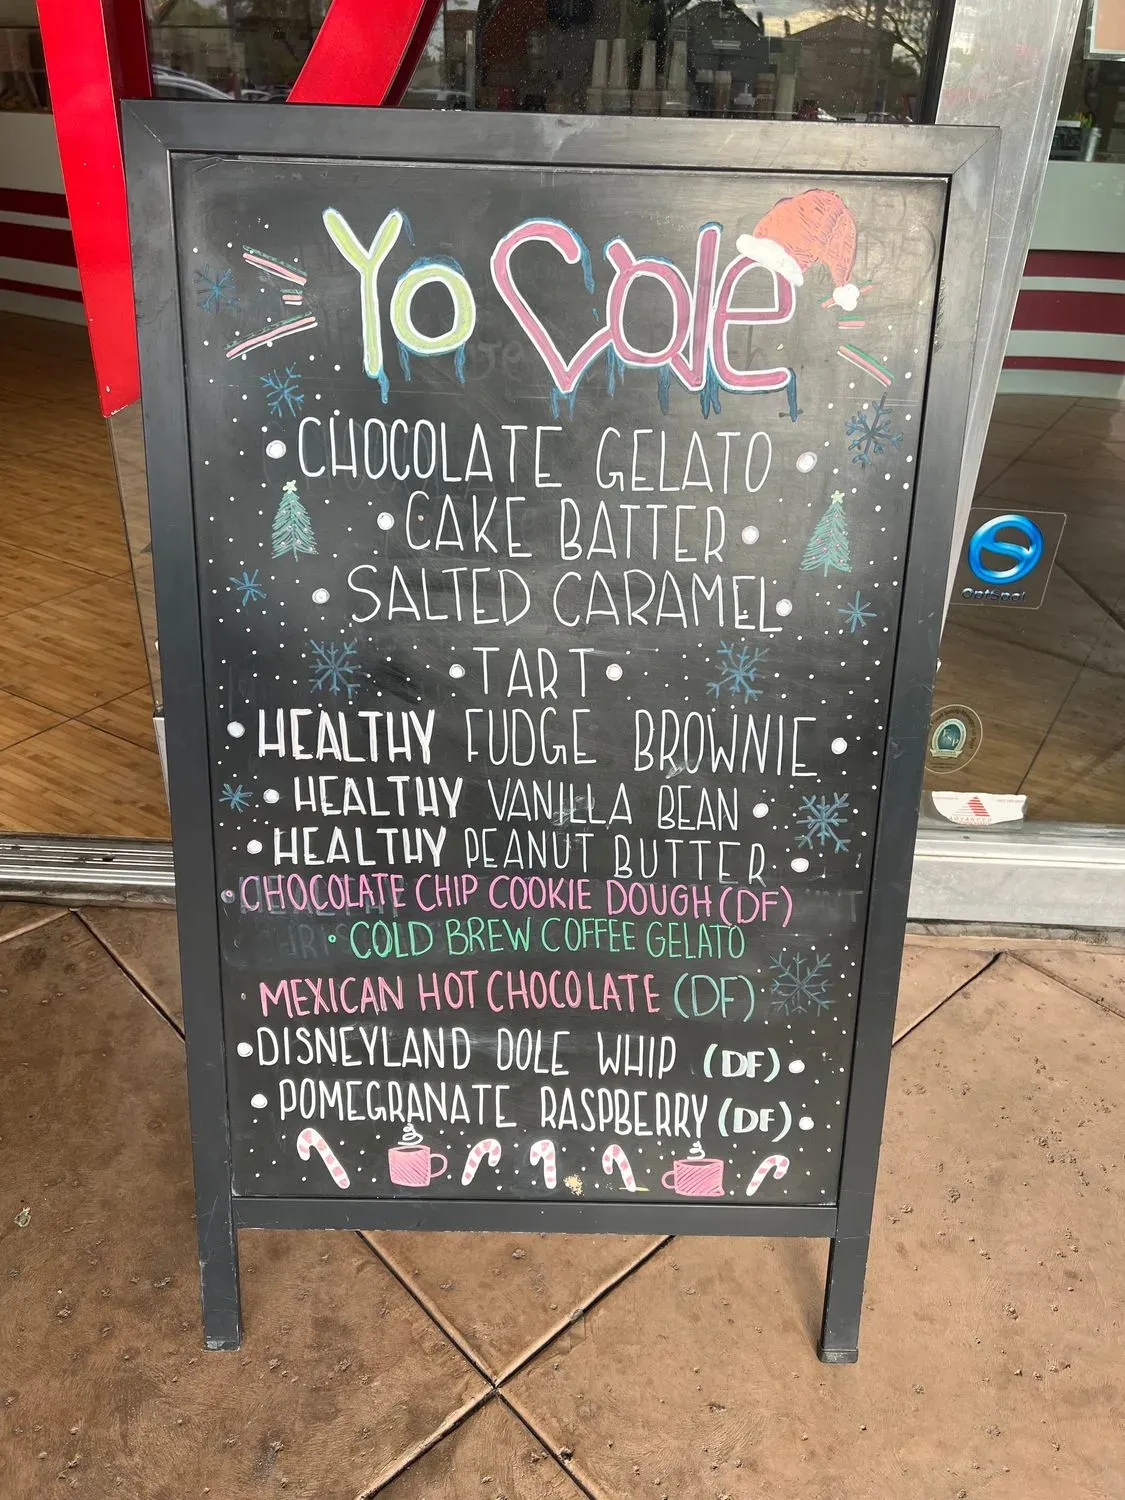 Yo Cole
CHOCOLATE GELATO
CAKE BATTER
SALTED CARAMEL
TART
HEALTHY FUDGE BROWNIE
HEALTHY VANILLA BEAN
HEALTHY PEANUT BUTTER
CHOCOLATE CHIP COOKIE DOUGH (DF)
COLD BREW COFFEE GELATO
MEXICAN HOT CHOCOLATE (DF)
DISNEYLAND DOLE WHIP (DF)
POMEGRANATE RASPBERRY (DF)
OptSpot
ADVANCED